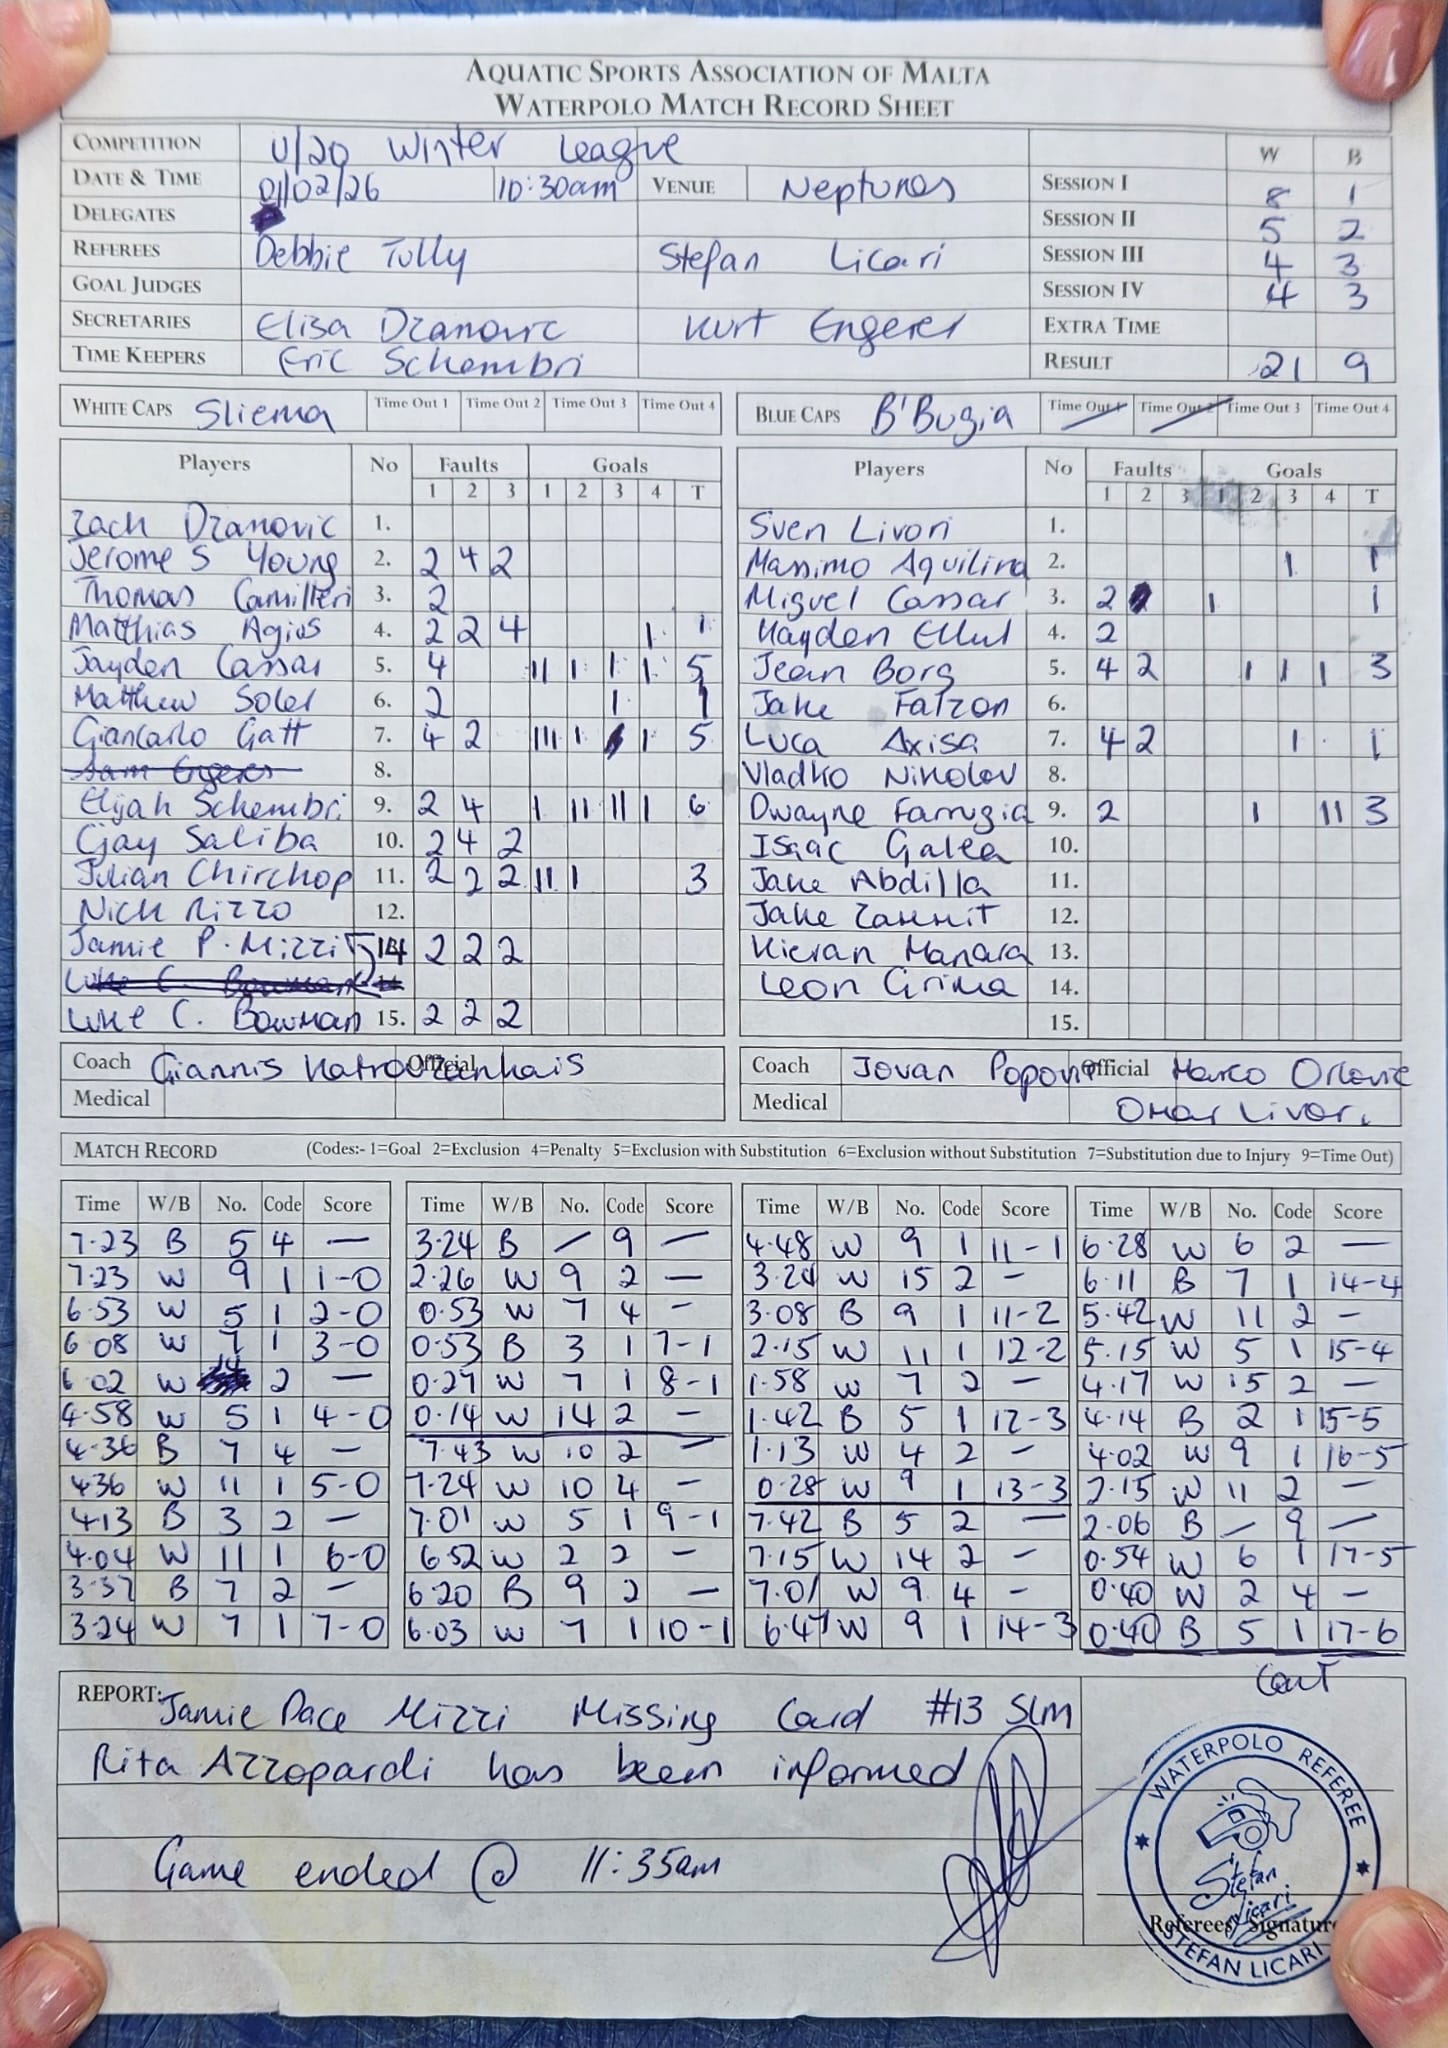 AQUATIC SPORTS ASSOCIATION OF MALTA
WATERPOLO MATCH RECORD SHEET
COMPETITION U/20 Winter League W B
DATE & TIME 01/02/26 10:30am VENUE Neptunes SESSION I 8 1
DELEGATES SESSION II 5 2
REFEREES Debbie Tully Stefan Licari SESSION III 4 3
GOAL JUDGES SESSION IV 4 3
SECRETARIES Elisa Dzanovic Kurt Engerer EXTRA TIME
TIME KEEPERS Eric Schembri RESULT 21 9
WHITE CAPS Sliema Time Out 1 Time Out 2 Time Out 3 Time Out 4 BLUE CAPS B'Bugia Time Out 1 Time Out 2 Time Out 3 Time Out 4
Players No Faults Goals Players No Faults Goals
1 2 3 1 2 3 4 T 1 2 3 1 2 3 4 T
Zach Dzanovic 1. Sven Livori 1.
Jerome S Young 2. 2 4 2 Massimo Aquilina 2. 1 1
Thomas Camilleri 3. 2 Miguel Cassar 3. 2 1 1
Matthias Agius 4. 2 2 4 1 1 Hayden Ellul 4. 2
Jayden Cassar 5. 4 11 1 1 1 5 Jean Borg 5. 4 2 1 1 1 3
Matthew Soler 6. 2 1 1 Jake Falzon 6.
Giancarlo Gatt 7. 4 2 111 1 1 5 Luca Axisa 7. 4 2 1 1
Sam Engerer 8. Vladko Nikolov 8.
Elijah Schembri 9. 2 4 1 11 11 1 6 Dwayne Farrugia 9. 2 1 11 3
Cjay Saliba 10. 2 4 2 Isaac Galea 10.
Julian Chirchop 11. 2 2 2 11 1 3 Jake Abdilla 11.
Nick Rizzo 12. Jake Zammit 12.
Jamie P. Mizzi 14 2 2 2 Kieran Manara 13.
Luke C. Bowman 14 Leon Cirima 14.
Luke C. Bowman 15. 2 2 2 15.
Coach Giannis Official Coach Jovan Popovic Official Marco Orlovic
Medical Medical Omar Livori
MATCH RECORD (Codes:- 1=Goal 2=Exclusion 4=Penalty 5=Exclusion with Substitution 6=Exclusion without Substitution 7=Substitution due to Injury 9=Time Out)
Time W/B No. Code Score Time W/B No. Code Score Time W/B No. Code Score Time W/B No. Code Score
7.23 B 5 4 — 3.24 B — 9 — 4.48 W 9 1 11-1 6.28 W 6 2 —
7.23 W 9 1 1-0 2.26 W 9 2 — 3.20 W 15 2 - 6.11 B 7 1 14-4
6.53 W 5 1 2-0 0.53 W 7 4 - 3.08 B 9 1 11-2 5.42 W 11 2 -
6.08 W 7 1 3-0 0.53 B 3 1 7-1 2.15 W 11 1 12-2 5.15 W 5 1 15-4
6.02 W 14 2 — 0.27 W 7 1 8-1 1.58 W 7 2 - 4.17 W 15 2 —
4.58 W 5 1 4-0 0.14 W 14 2 - 1.42 B 5 1 12-3 4.14 B 2 1 15-5
4.36 B 7 4 — 7.43 W 10 2 — 1.13 W 4 2 - 4.02 W 9 1 16-5
4.36 W 11 1 5-0 7.24 W 10 4 - 0.28 W 9 1 13-3 2.15 W 11 2 —
4.13 B 3 2 — 7.01 W 5 1 9-1 7.42 B 5 2 — 2.06 B — 9 —
4.04 W 11 1 6-0 6.52 W 2 2 - 7.15 W 14 2 - 0.54 W 6 1 17-5
3.37 B 7 2 — 6.20 B 9 2 — 7.01 W 9 4 - 0.40 W 2 4 -
3.24 W 7 1 7-0 6.03 W 7 1 10-1 6.47 W 9 1 14-3 0.40 B 5 1 17-6
Cont
REPORT: Jamie Pace Mizzi Missing Card #13 SLM
Rita Azzopardi has been informed
Game ended @ 11:35am
WATERPOLO REFEREE
Stefan Licari
Referees Signature
STEFAN LICARI